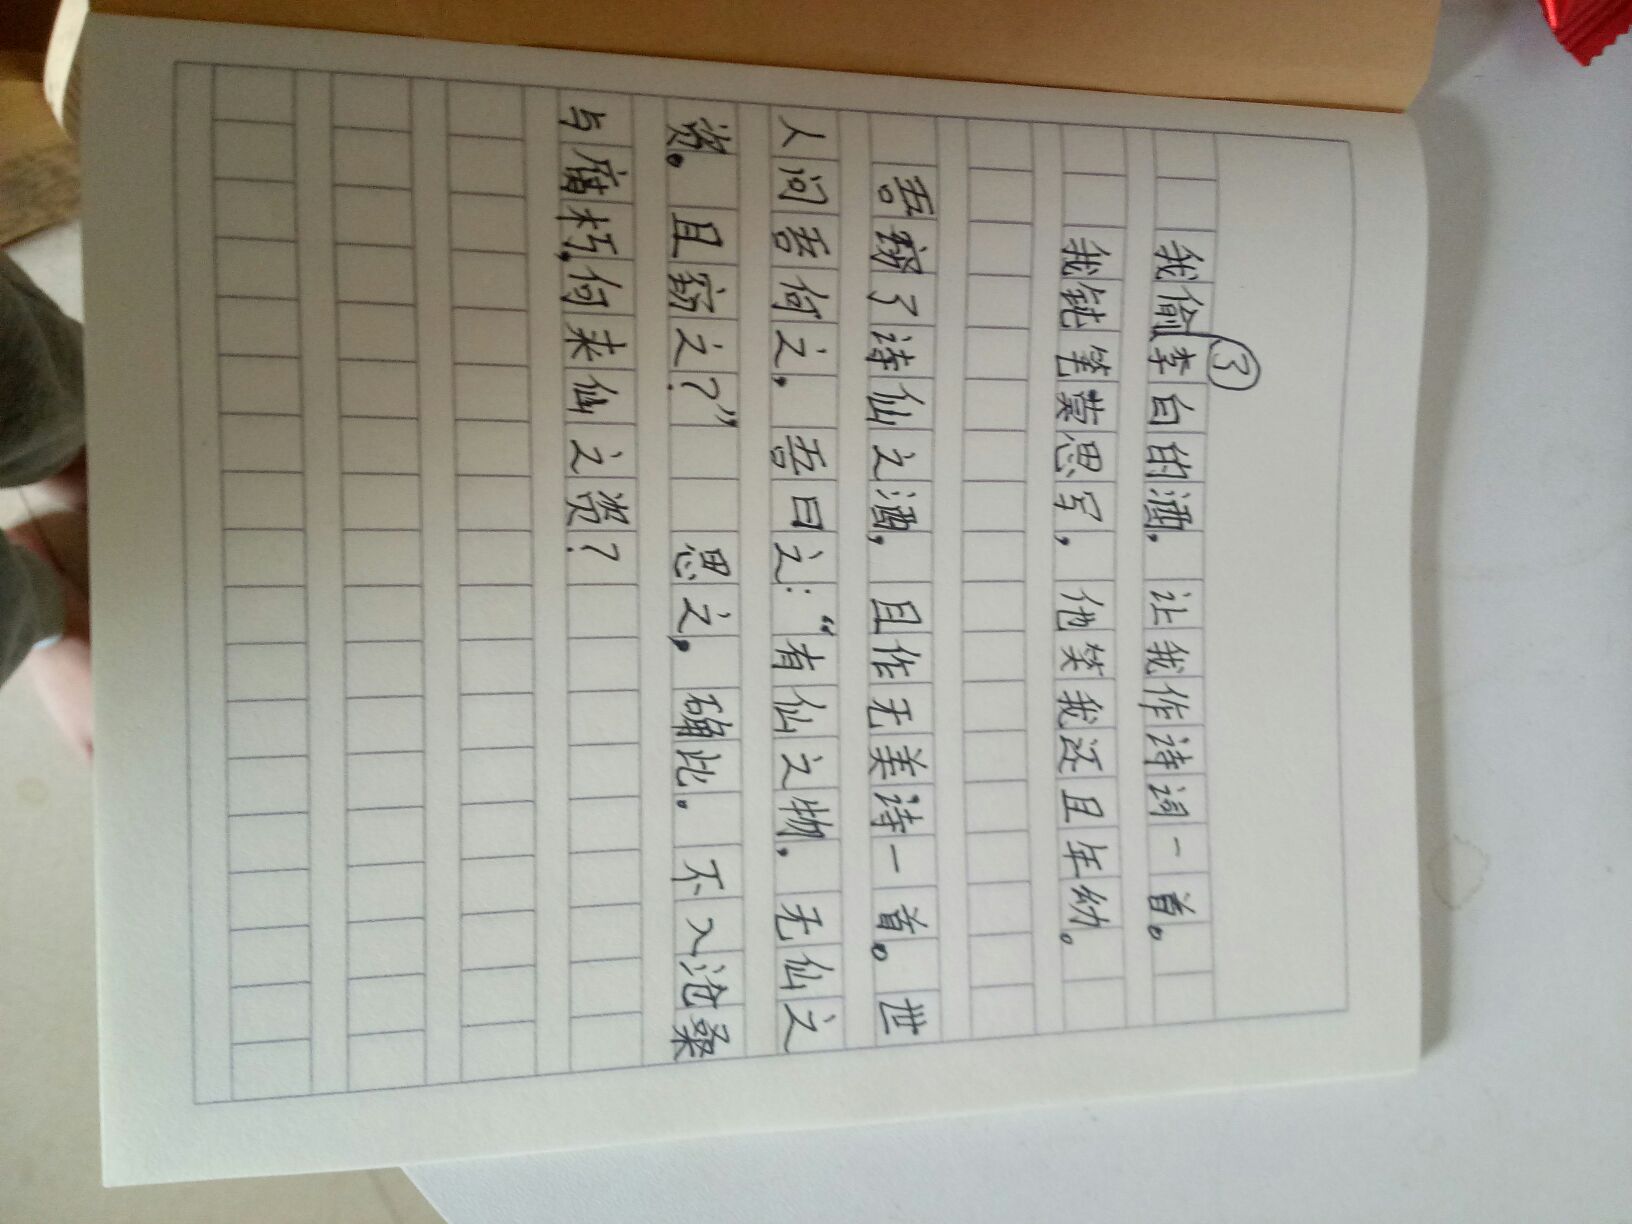 ③
我偷李白的酒，让我作诗词一首。
我钝笔莫思写，他笑我还且年幼。
吾窃了诗仙之酒，且作无美诗一首。世
人问吾何之，吾曰之：“有仙之物，无仙之
资。且窃之？” 思之，确此。不入沧桑
与腐朽，何来仙之资？